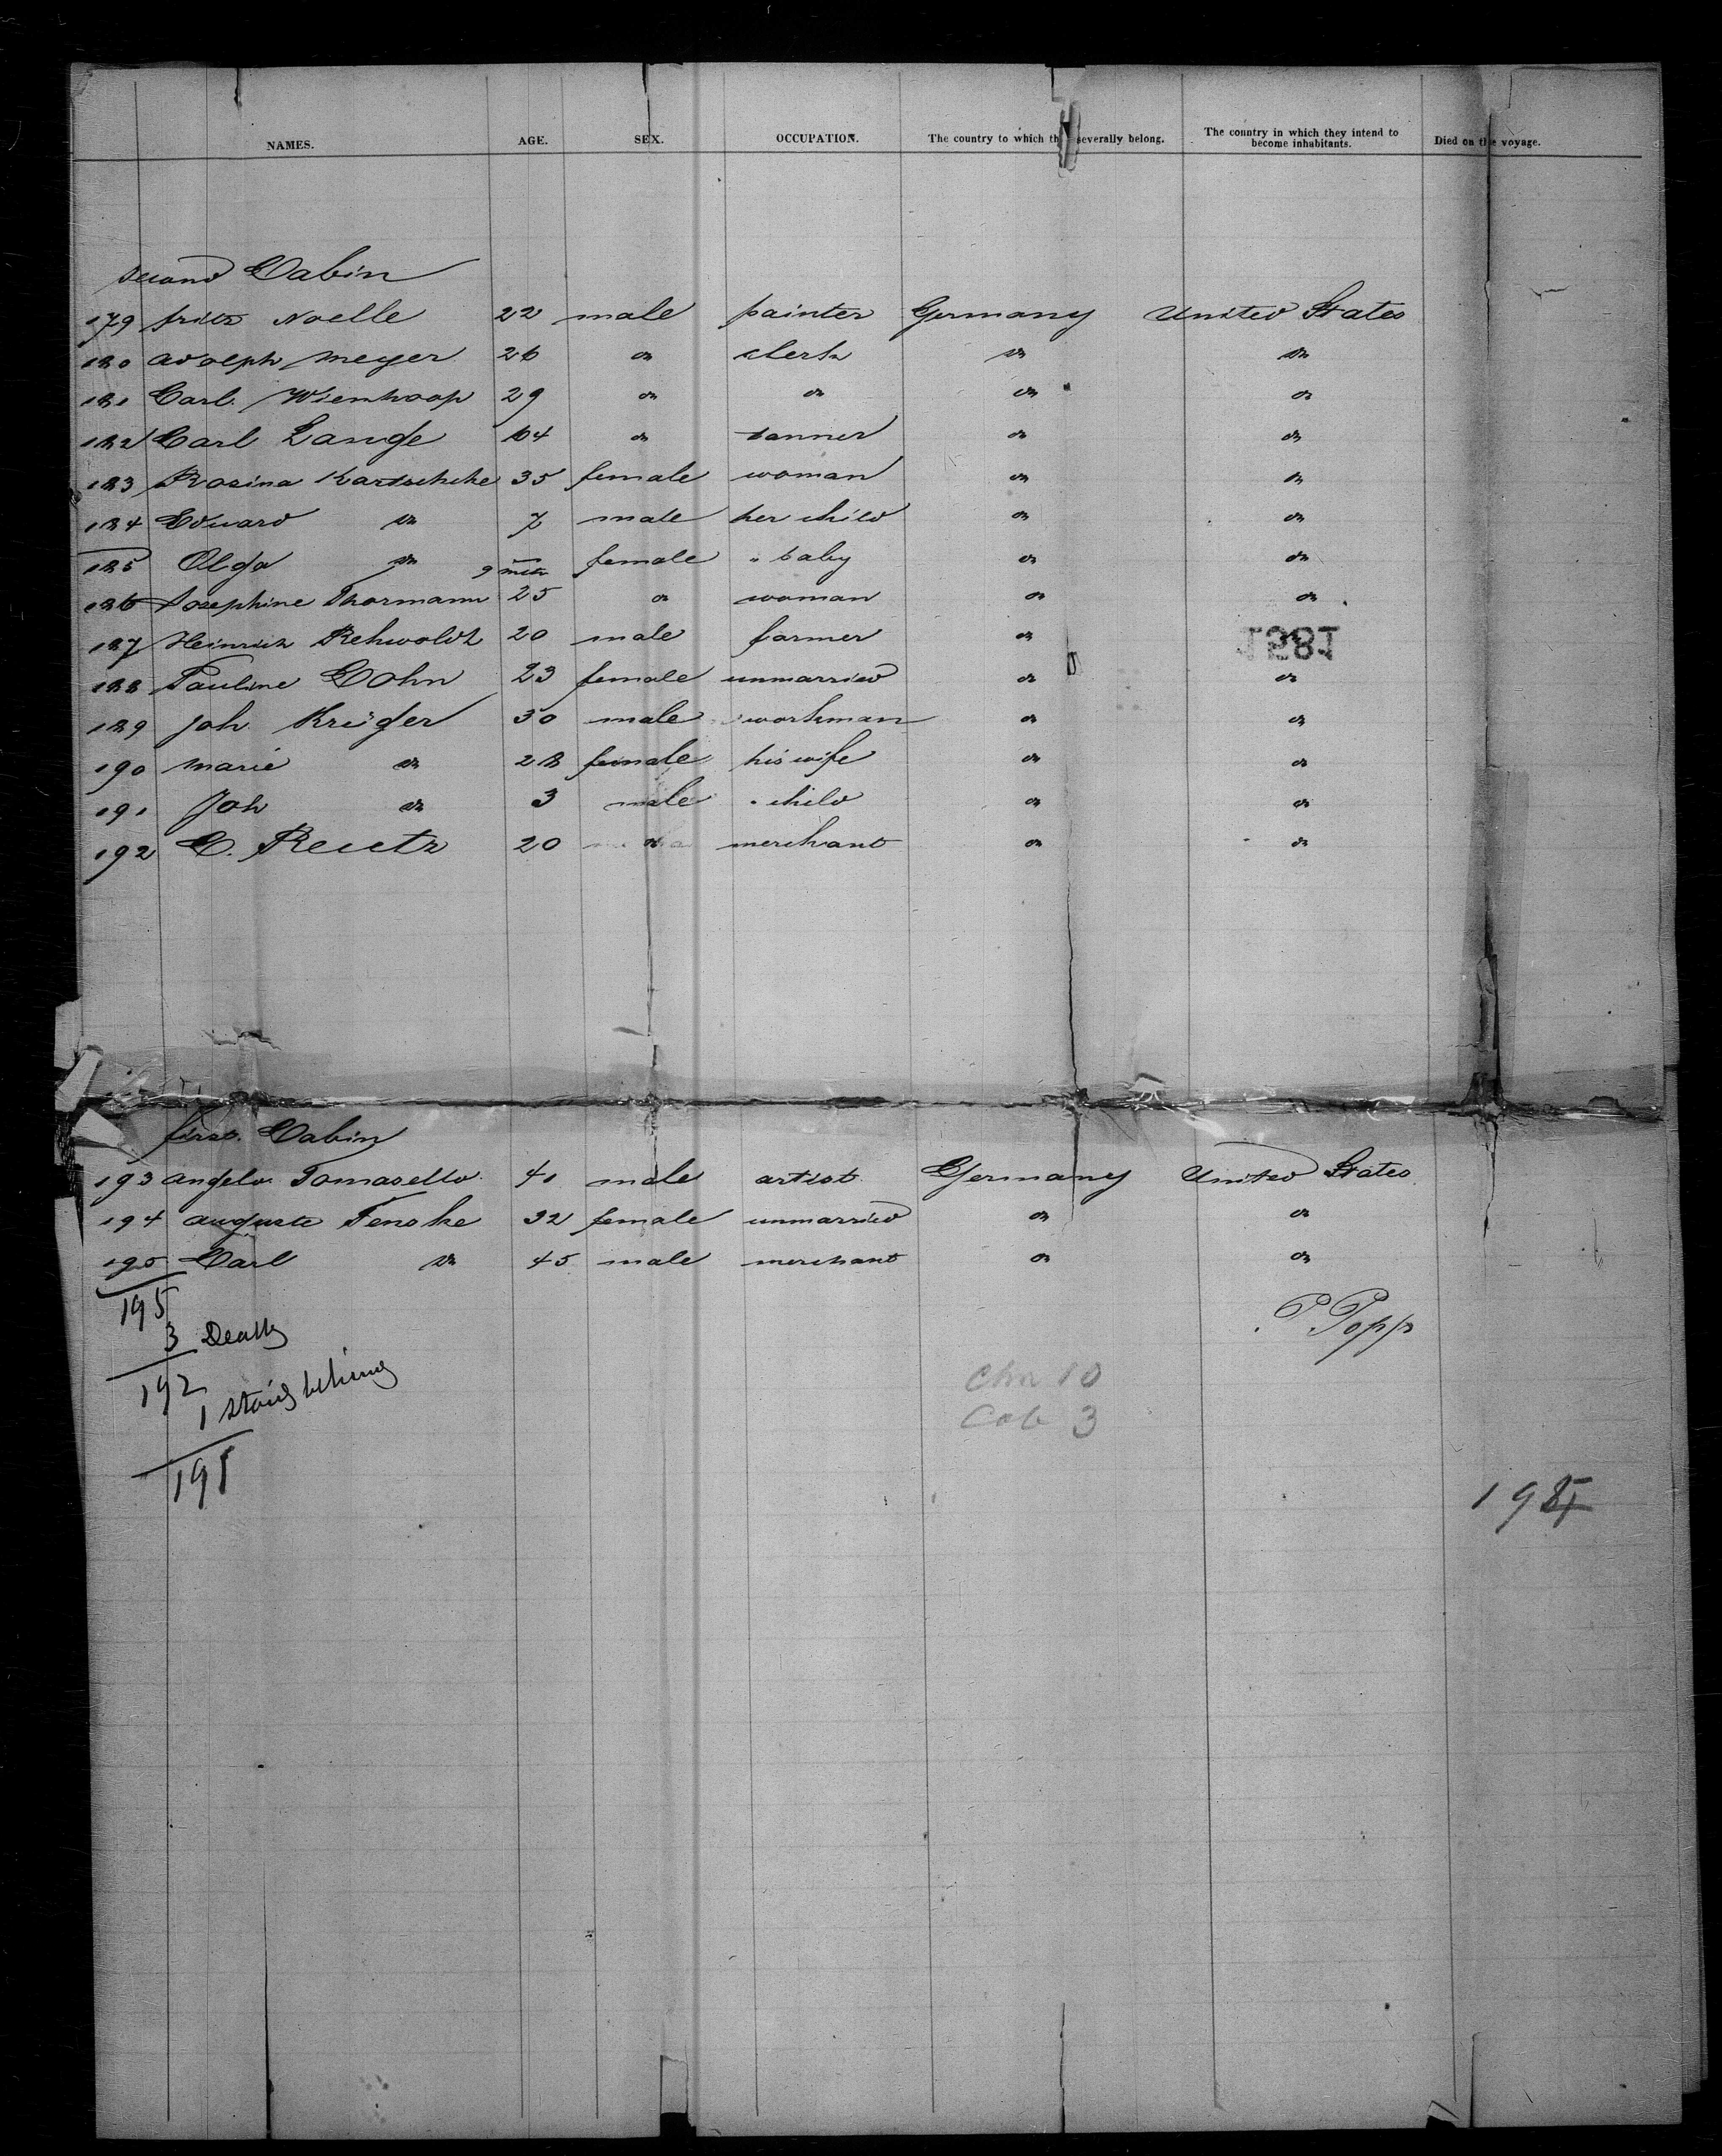 NAMES. AGE. SEX. OCCUPATION. The country to which th severally belong. The country in which they intend to become inhabitants. Died on the voyage.
Second Cabin
179 Fritz Noelle 22 male painter Germany United States
180 Adolph Meyer 26 do clerk do do
181 Carl Wienhoop 29 do do do do
182 Carl Lange 64 do tanner do do
183 Rosina Kartschke 35 female woman do do
184 Eduard do 7 male her child do do
185 Olga do 9 mth female " baby do do
186 Josephine Thormann 25 do woman do do
187 Heinrich Rehwoldt 20 male farmer do
188 Pauline Cohn 23 female unmarried do do
189 Joh. Krüger 30 male workman do do
190 Marie do 28 female his wife do do
191 Joh do 3 male " child do do
192 C. Reutz 20 do merchant do do
First Cabin
193 Angelo Tomasello 41 male artist Germany United States
194 Auguste Tenske 32 female unmarried do do
195 Carl do 45 male merchant do do
195
3 Deaths
192
1 staid behind
191
P. Popp
Chn 10
Cab 3